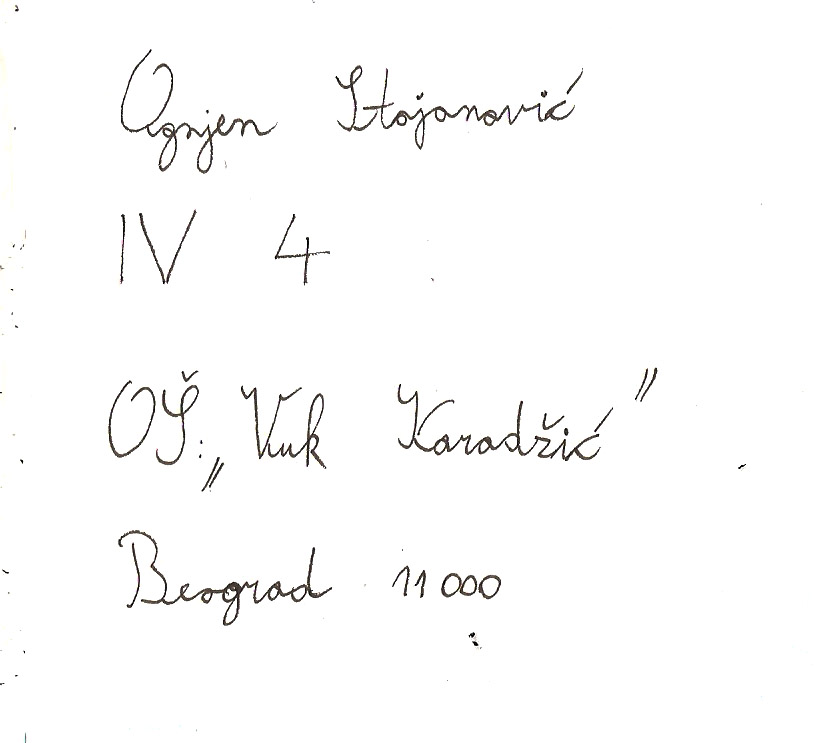 Ognjen Stojanović
IV 4
OŠ: „Vuk Karadžić”
Beograd 11000